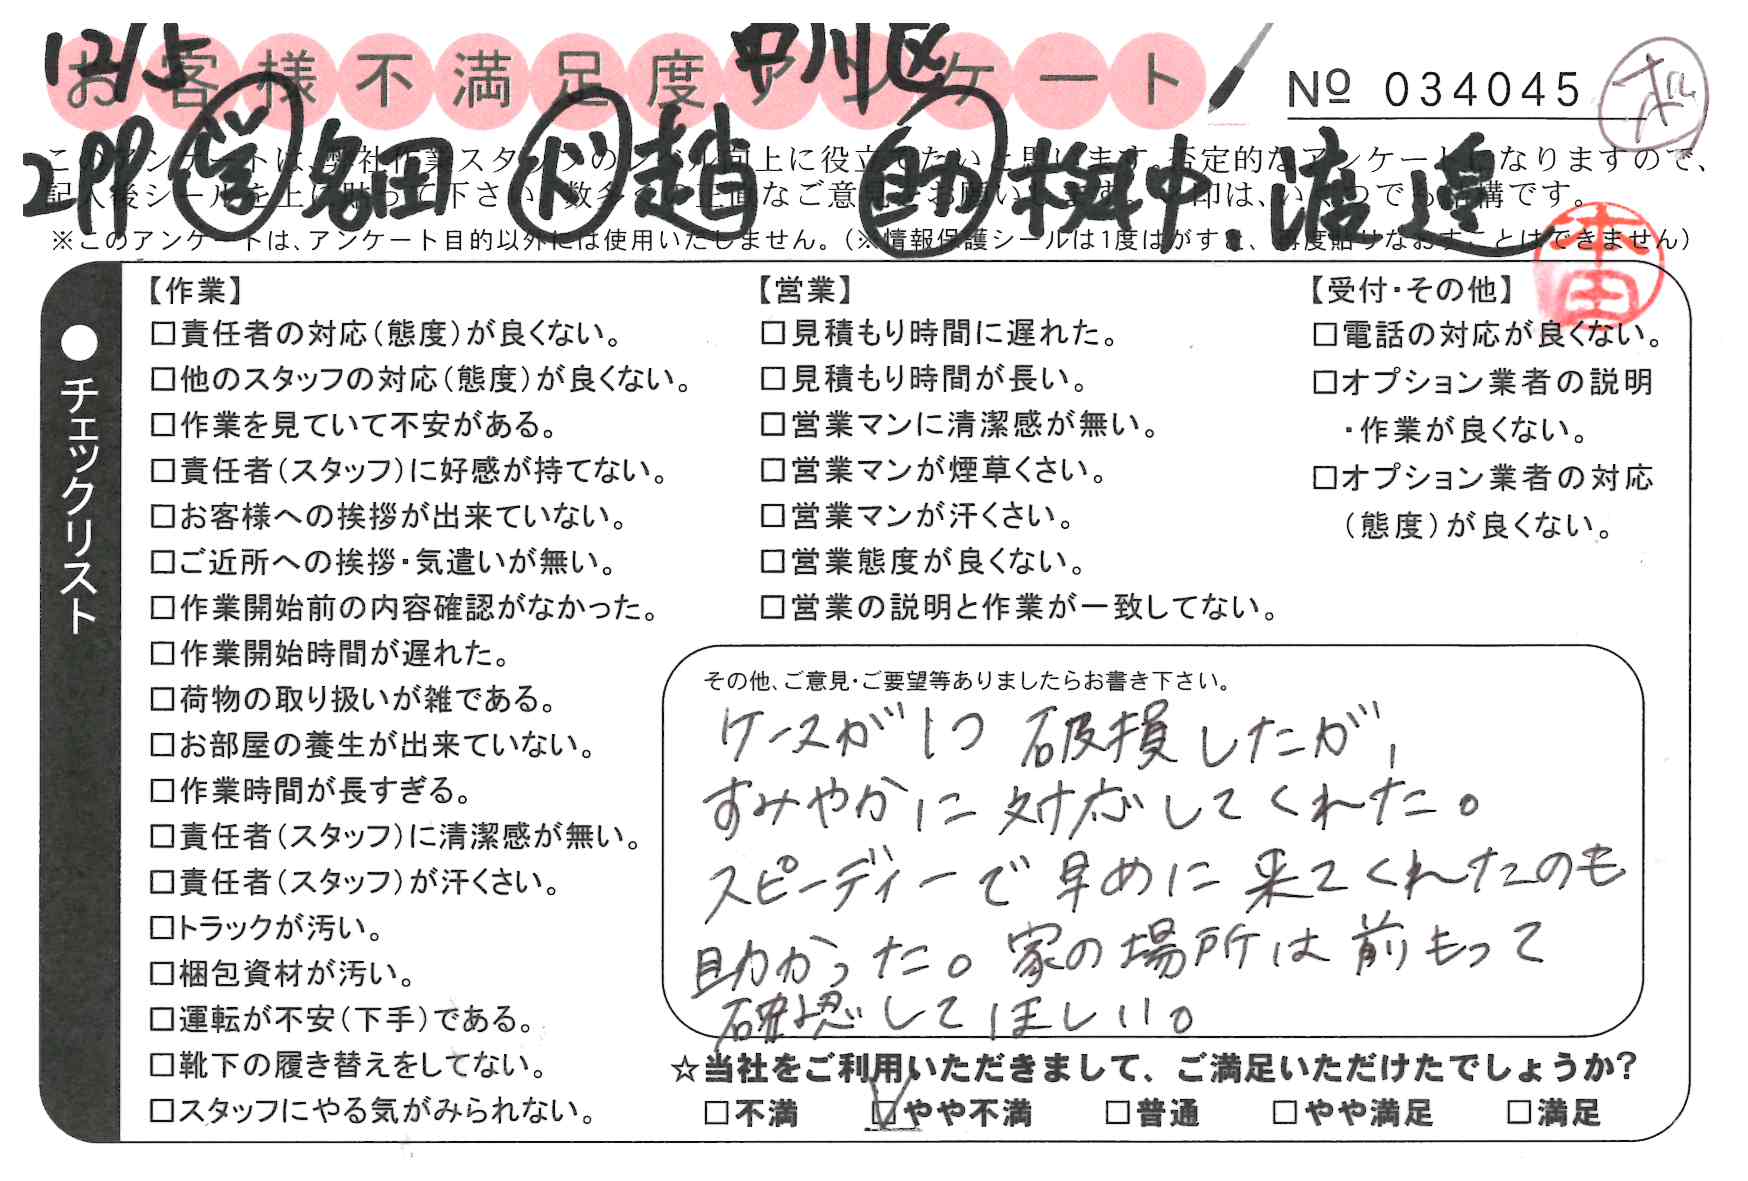 12/5 中川区
お客様不満足度アンケート
Nº 034045
2PP 学 名田 ド 趙 助 渡邉
このアンケートは、弊社作業スタッフのレベル向上に役立てたいと思います。否定的なアンケートになりますので、
記入後シールを上に貼って下さい。数多くの正直なご意見をお願いします。✓印は、いくつでも結構です。
※このアンケートは、アンケート目的以外には使用いたしません。（※情報保護シールは1度はがすと、再度貼りなおすことはできません）
本田
●チェックリスト
【作業】
□責任者の対応（態度）が良くない。
□他のスタッフの対応（態度）が良くない。
□作業を見ていて不安がある。
□責任者（スタッフ）に好感が持てない。
□お客様への挨拶が出来ていない。
□ご近所への挨拶・気遣いが無い。
□作業開始前の内容確認がなかった。
□作業開始時間が遅れた。
□荷物の取り扱いが雑である。
□お部屋の養生が出来ていない。
□作業時間が長すぎる。
□責任者（スタッフ）に清潔感が無い。
□責任者（スタッフ）が汗くさい。
□トラックが汚い。
□梱包資材が汚い。
□運転が不安（下手）である。
□靴下の履き替えをしてない。
□スタッフにやる気がみられない。
【営業】
□見積もり時間に遅れた。
□見積もり時間が長い。
□営業マンに清潔感が無い。
□営業マンが煙草くさい。
□営業マンが汗くさい。
□営業態度が良くない。
□営業の説明と作業が一致してない。
【受付・その他】
□電話の対応が良くない。
□オプション業者の説明
・作業が良くない。
□オプション業者の対応
（態度）が良くない。
その他、ご意見・ご要望等ありましたらお書き下さい。
ケースが1つ 破損したが,
すみやかに対応してくれた。
スピーディーで早めに来てくれたのも
助かった。家の場所は前もって
確認してほしい。
☆当社をご利用いただきまして、ご満足いただけたでしょうか?
□不満 ☑やや不満 □普通 □やや満足 □満足